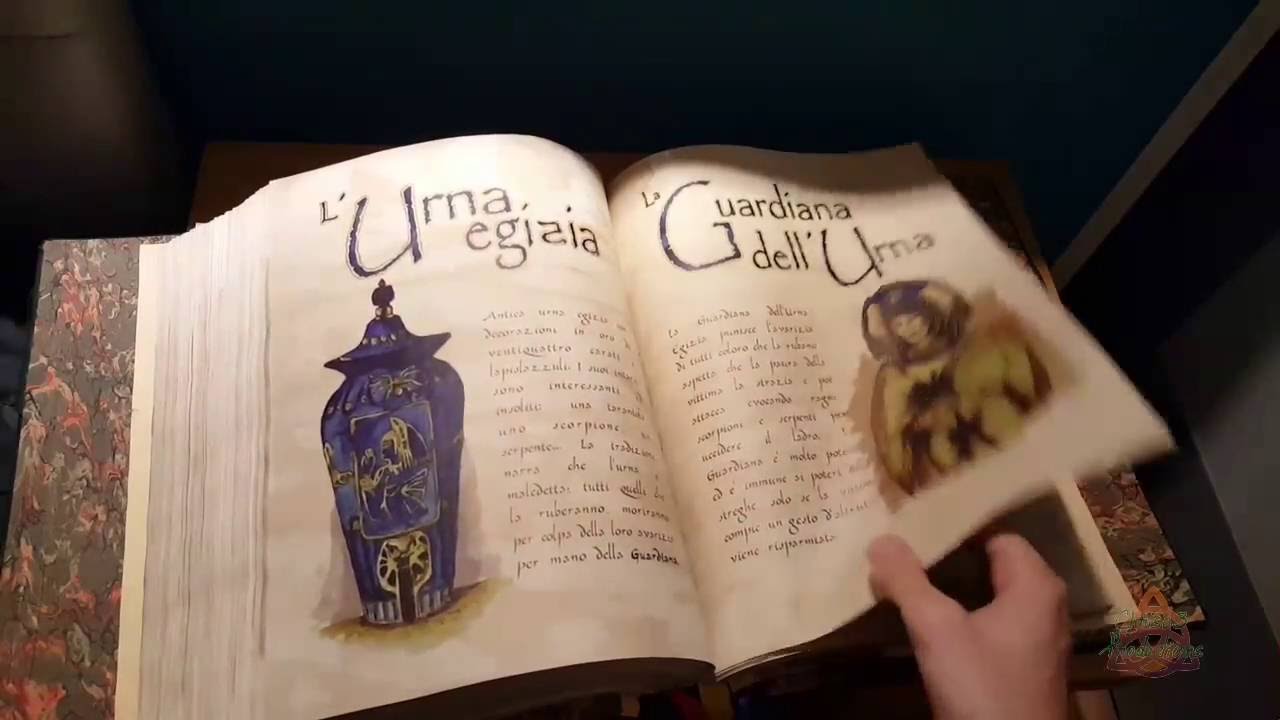 L'Urna
egizia
Antica urna egizia
decorazioni in oro
ventiquattro carati
lapislazzuli. I suoi
sono interessanti
insoliti: una tarantola
uno scorpione
serpente... La tradizione
narra che l'urna
maledetta: tutti quelli
la ruberanno moriranno
per colpa della loro avarizia
per mano della Guardiana
La Guardiana
dell'Urna
La Guardiana dell'Urna
Egizia punisce l'avarizia
di tutti coloro che la rubano
aspetto che la paura della
vittima la strazia e poi
attacca evocando ragni
scorpioni e serpenti per
uccidere il ladro.
Guardiana è molto potente
ed è immune ai poteri
streghe solo se la vittima
compie un gesto d'altruismo
viene risparmiata.